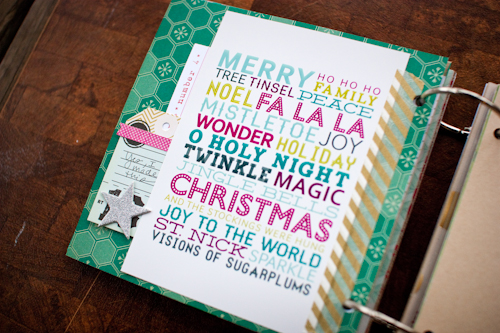 MERRY HO HO HO
TREE TINSEL FAMILY
NOEL FA LA LA PEACE
MISTLETOE JOY
WONDER HOLIDAY
O HOLY NIGHT
TWINKLE MAGIC
JINGLE BELLS
CHRISTMAS
AND THE STOCKINGS WERE HUNG
JOY TO THE WORLD
ST. NICK SPARKLE
VISIONS OF SUGARPLUMS
number 4
made
this
BY